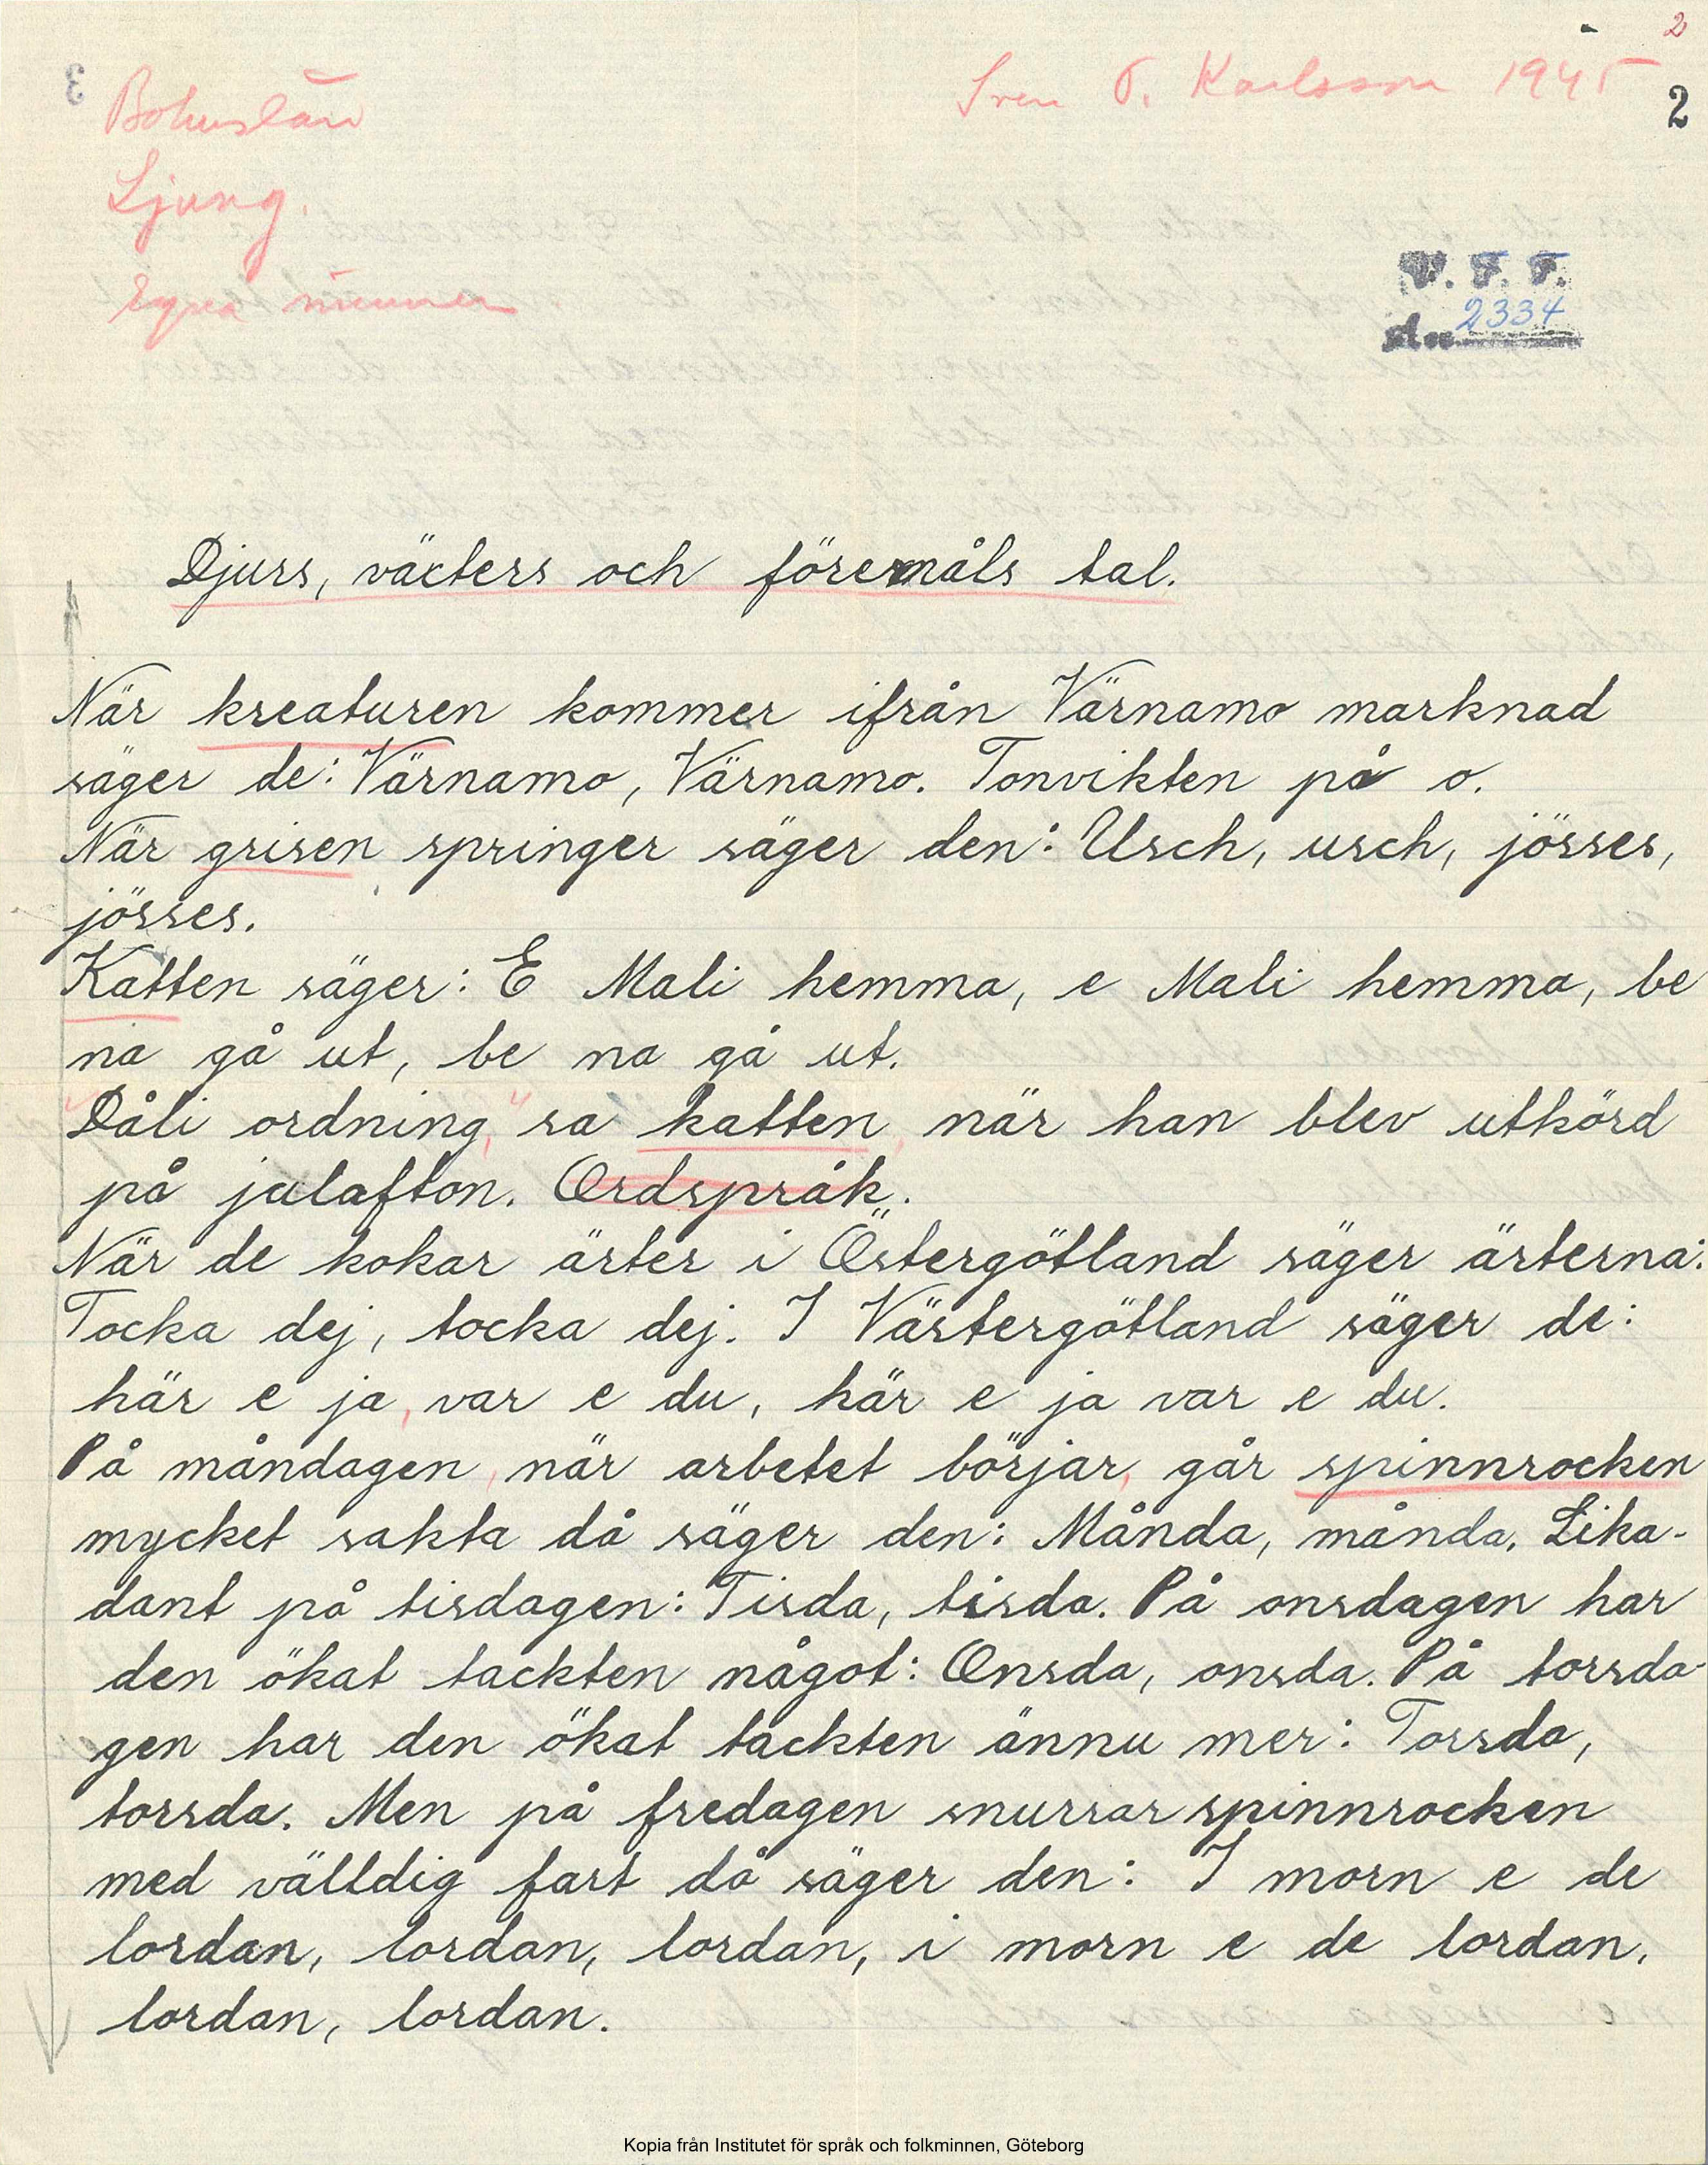 2
Sven O. Karlsson 1945
2
3
Bohuslän
Ljung.
Egna minnen
V. F. F.
2334
Djurs, väcters och föremåls tal.
När kreaturen kommer ifrån Värnamo marknad
säger de: Värnamo, Värnamo. Tonvikten på o.
När grisen springer säger den: Usch, usch, jösses,
jösses.
Katten säger: E Mali hemma, e Mali hemma, be
na gå ut, be na gå ut.
"Dåli ordning," sa katten, när han blev utkörd
på julafton. Ordspråk.
När de kokar ärter i Östergötland säger ärterna:
Tocka dej, tocka dej. I Västergötland säger de:
här e ja, var e du, här e ja var e du.
På måndagen, när arbetet börjar, går spinnrocken
mycket sakta då säger den: Månda, månda. Lika-
dant på tisdagen: Tisda, tisda. På onsdagen har
den ökat tackten något: Onsda, onsda. På torsda
gen har den ökat tackten ännu mer: Torsda,
torsda. Men på fredagen snurrar spinnrocken
med välldig fart då säger den: I morn e de
lordan, lordan, lordan, i morn e de lordan,
lordan, lordan.
Kopia från Institutet för språk och folkminnen, Göteborg